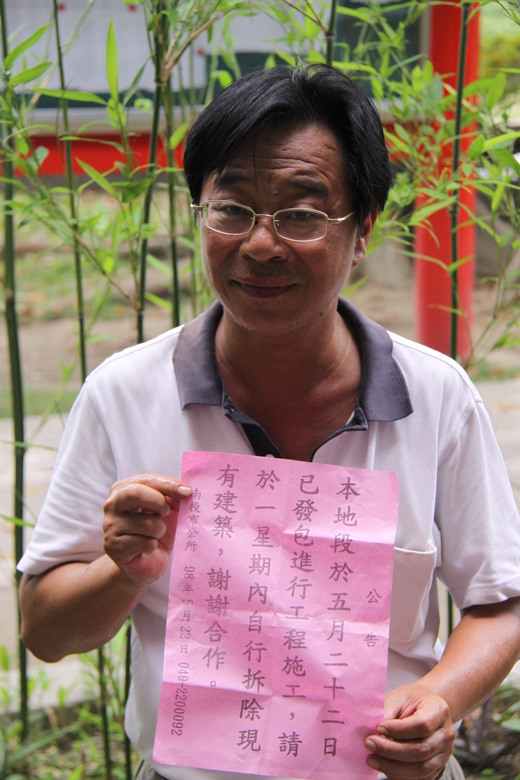 公告
本地段於五月二十二日
已發包進行工程施工，請
於一星期內自行拆除現
有建築，謝謝合作。
南投市公所 98年5月22日 049-2200092